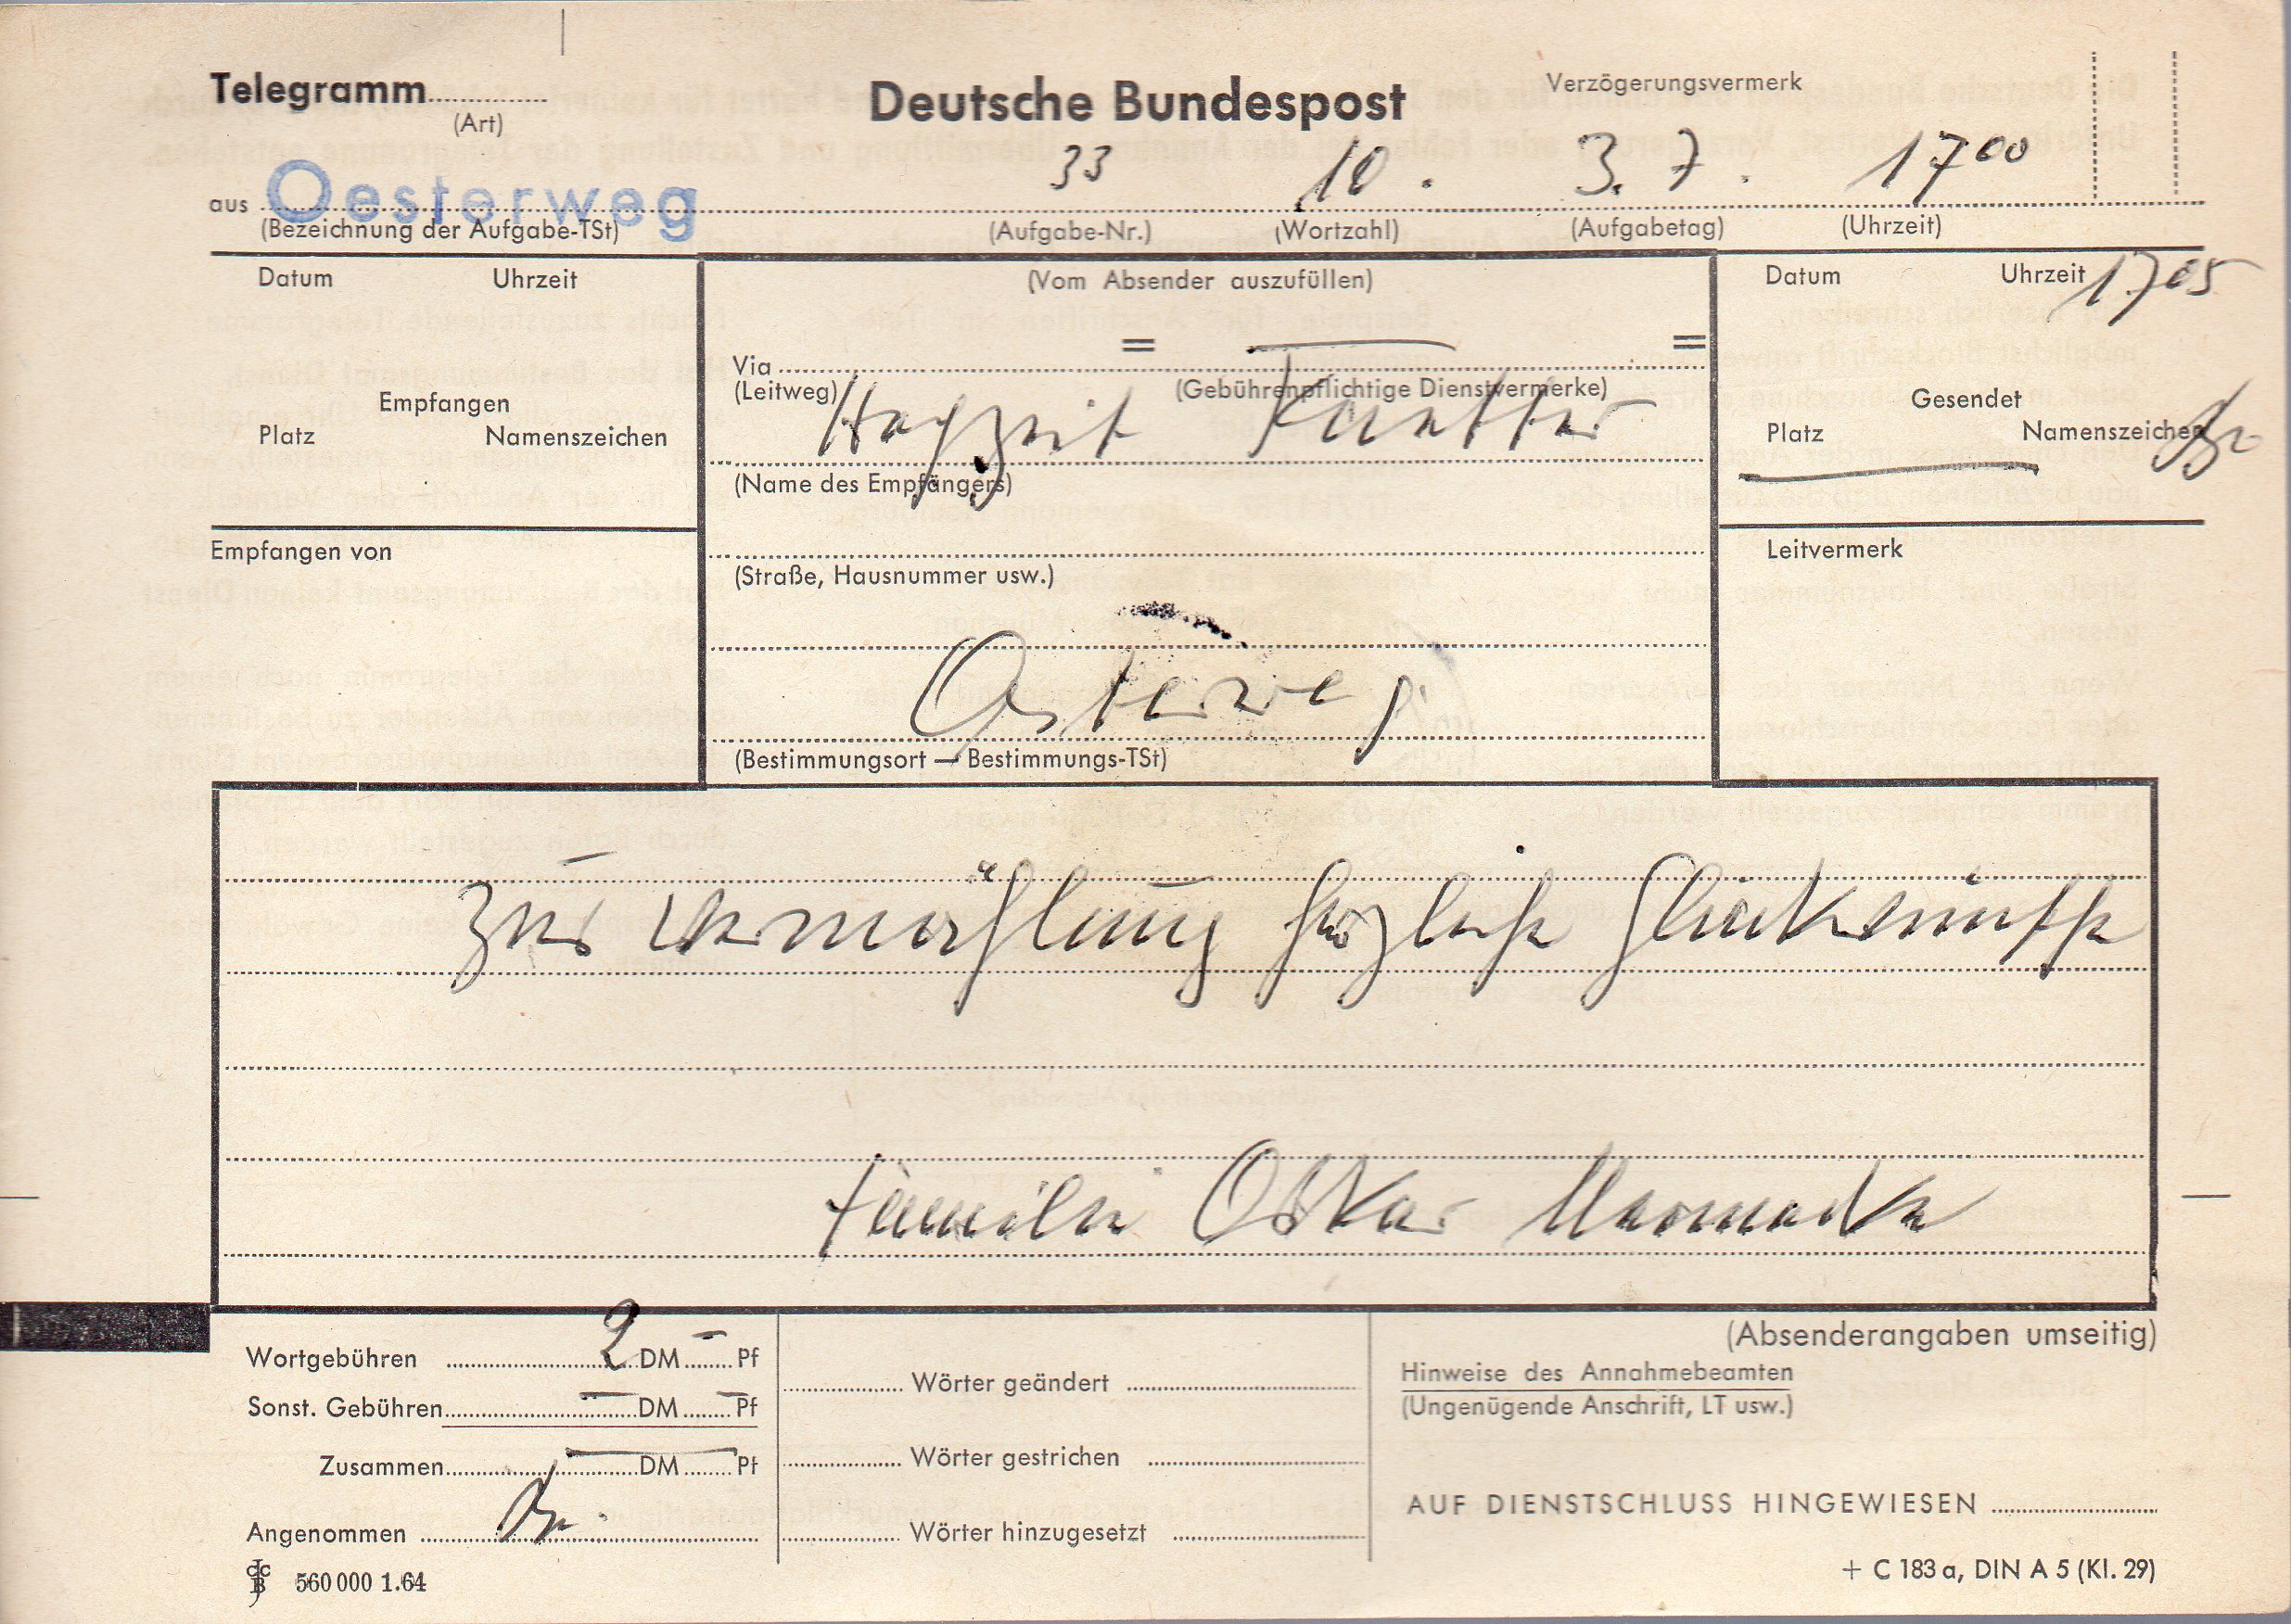 Telegramm
(Art)
Deutsche Bundespost
Verzögerungsvermerk
aus Oesterweg 33 10. 3. 7. 17⁰⁰
(Bezeichnung der Aufgabe-TSt) (Aufgabe-Nr.) (Wortzahl) (Aufgabetag) (Uhrzeit)
Datum Uhrzeit
Empfangen
Platz Namenszeichen
Empfangen von
(Vom Absender auszufüllen)
= — =
Via
(Leitweg) (Gebührenpflichtige Dienstvermerke)
Hochzeit
(Name des Empfängers)
(Straße, Hausnummer usw.)
Osterweg
(Bestimmungsort — Bestimmungs-TSt)
Datum Uhrzeit 17⁰⁵
Gesendet
Platz Namenszeichen
Leitvermerk
Zur Vermählung herzliche Glückwünsche
Familie Oskar
Wortgebühren 2 DM — Pf
Sonst. Gebühren — DM — Pf
Zusammen DM Pf
Angenommen
560 000 1.64
Wörter geändert
Wörter gestrichen
Wörter hinzugesetzt
(Absenderangaben umseitig)
Hinweise des Annahmebeamten
(Ungenügende Anschrift, LT usw.)
AUF DIENSTSCHLUSS HINGEWIESEN
+ C 183 a, DIN A 5 (Kl. 29)